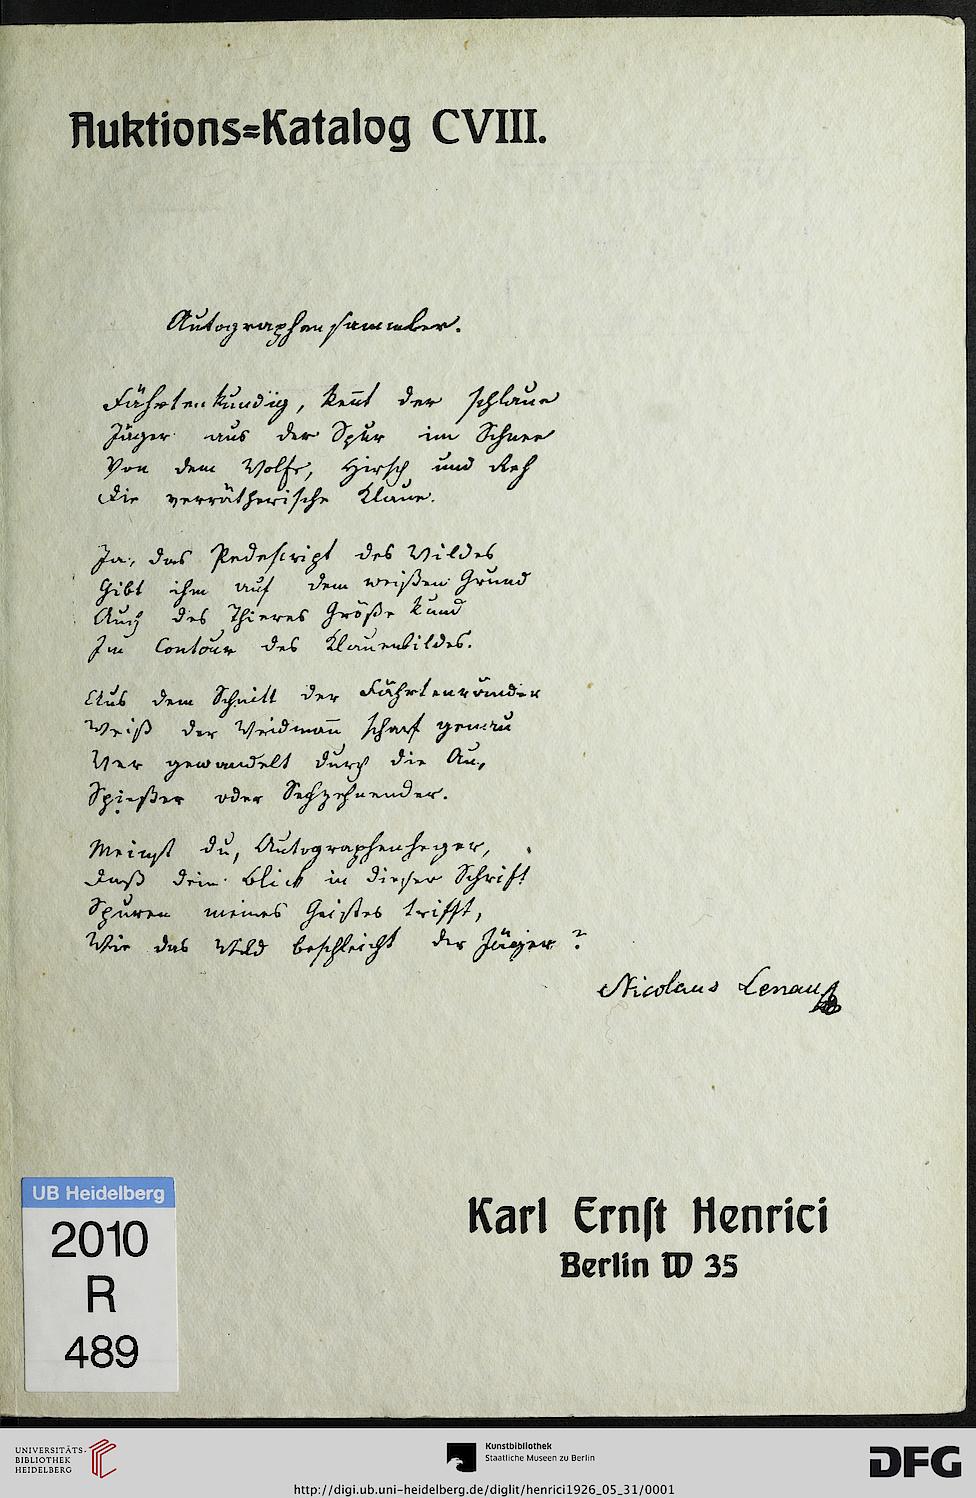 Auktions=Katalog CVIII.
Autographensammler.
Fährtenkundig, keñt der schlaue
Jäger aus der Spur im Schnee
Von dem Wolfe, Hirsch und Reh
Die verrätherische Klaue.
Ja, das Pedescript des Wildes
Gibt ihm auf dem weißen Grund
Auch des Thieres Größe kund
Im Contour des Klauenbildes.
Aus dem Schnitt der Fährtenränder
Weiß der Weidmañ scharf genau
Wer gewandelt durch die Au,
Spießer oder Sechzehnender.
Meinst du, Autographenheger,
Daß dein Blick in dieser Schrift
Spuren meines Geistes trifft,
Wie das Wild beschleicht der Jäger?
Nicolaus Lenau
Karl Ernſt Henrici
Berlin W 35
UB Heidelberg
2010
R
489
UNIVERSITÄTS-
BIBLIOTHEK
HEIDELBERG
Kunstbibliothek
Staatliche Museen zu Berlin
DFG
http://digi.ub.uni-heidelberg.de/diglit/henrici1926_05_31/0001